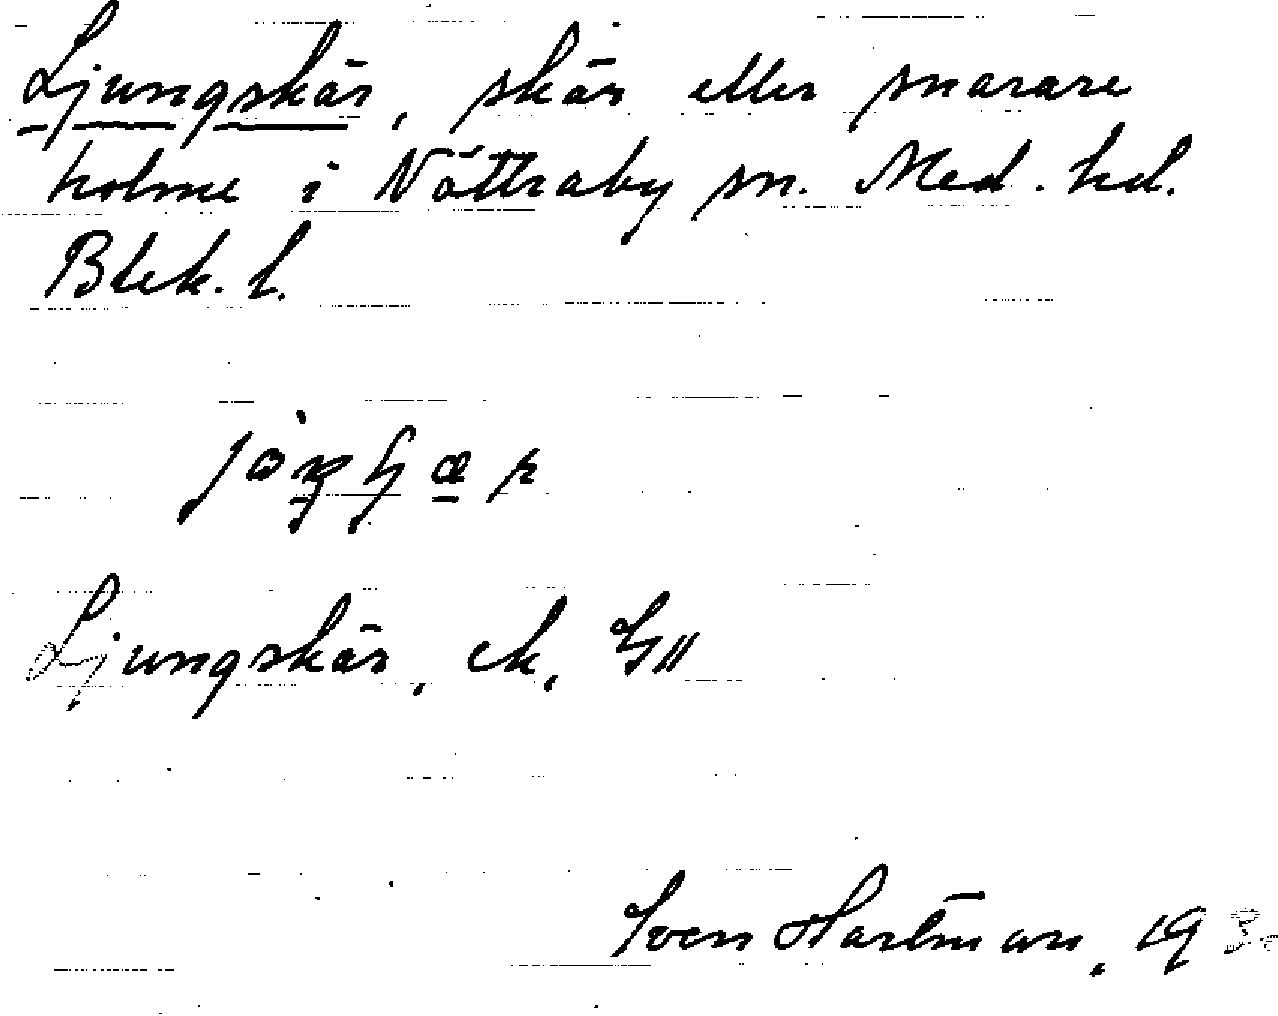 Ljungskär, skär eller snarare
holme i Nättraby sn. Med. hd.
Blek. l.
Ljungskär, ek,
Sven Hartman, 193